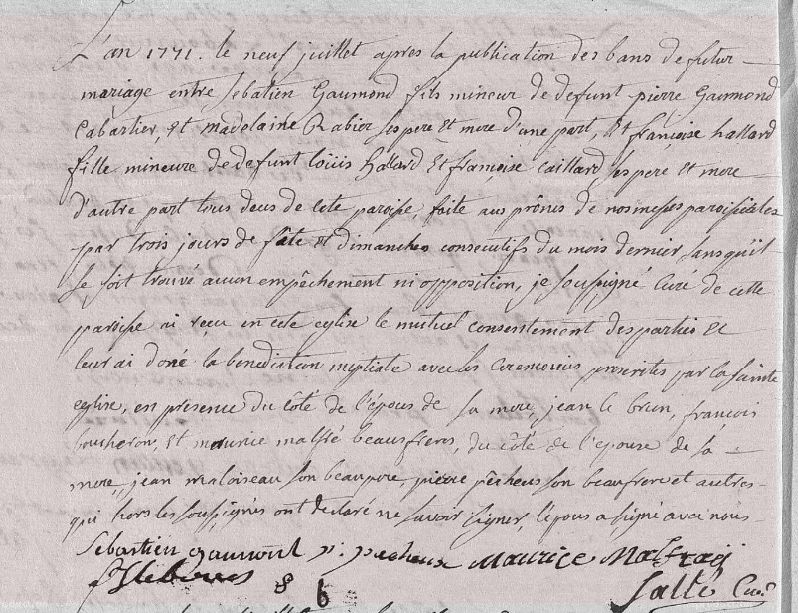 L'an 1771. le neuf juillet apres la publication des bans de futur
mariage entre sebatien Gaumond fils mineur de defunt pierre Gaumond
Cabartier, et madelaine Rabier ses pere et mere d'une part, et françoise hallard
fille mineure de defunt loüis hallard et françoise caillard, ses pere et mere
d'autre part tous deus de cete paroisse, faite aus prônes de nos messes paroissiales
par trois jours de fête et dimanches consecutifs du mois dernier, sans qu'il
se soit trouvé aucun empêchement ni opposition, je soussigné Curé de cette
paroisse ai reçu en cete eglise le mutuel consentement des parties et
leur ai doné la benediction nuptiale avec les ceremonies prescrites par la sainte
eglise, en presence du côté de l'épous de sa mere, jean le brun, françois
boucheron, et maurice malfré beausfreres, du côté de l'epouse de sa
mere, jean maloiseau son beaupere, pierre pêcheus son beaufrere et autres
qui hors les soussignés ont declaré ne savoir signer, l'épous a signé avec nous
Sebastien gaumont p. pecheux Maurice Malfray
Sallé Curé